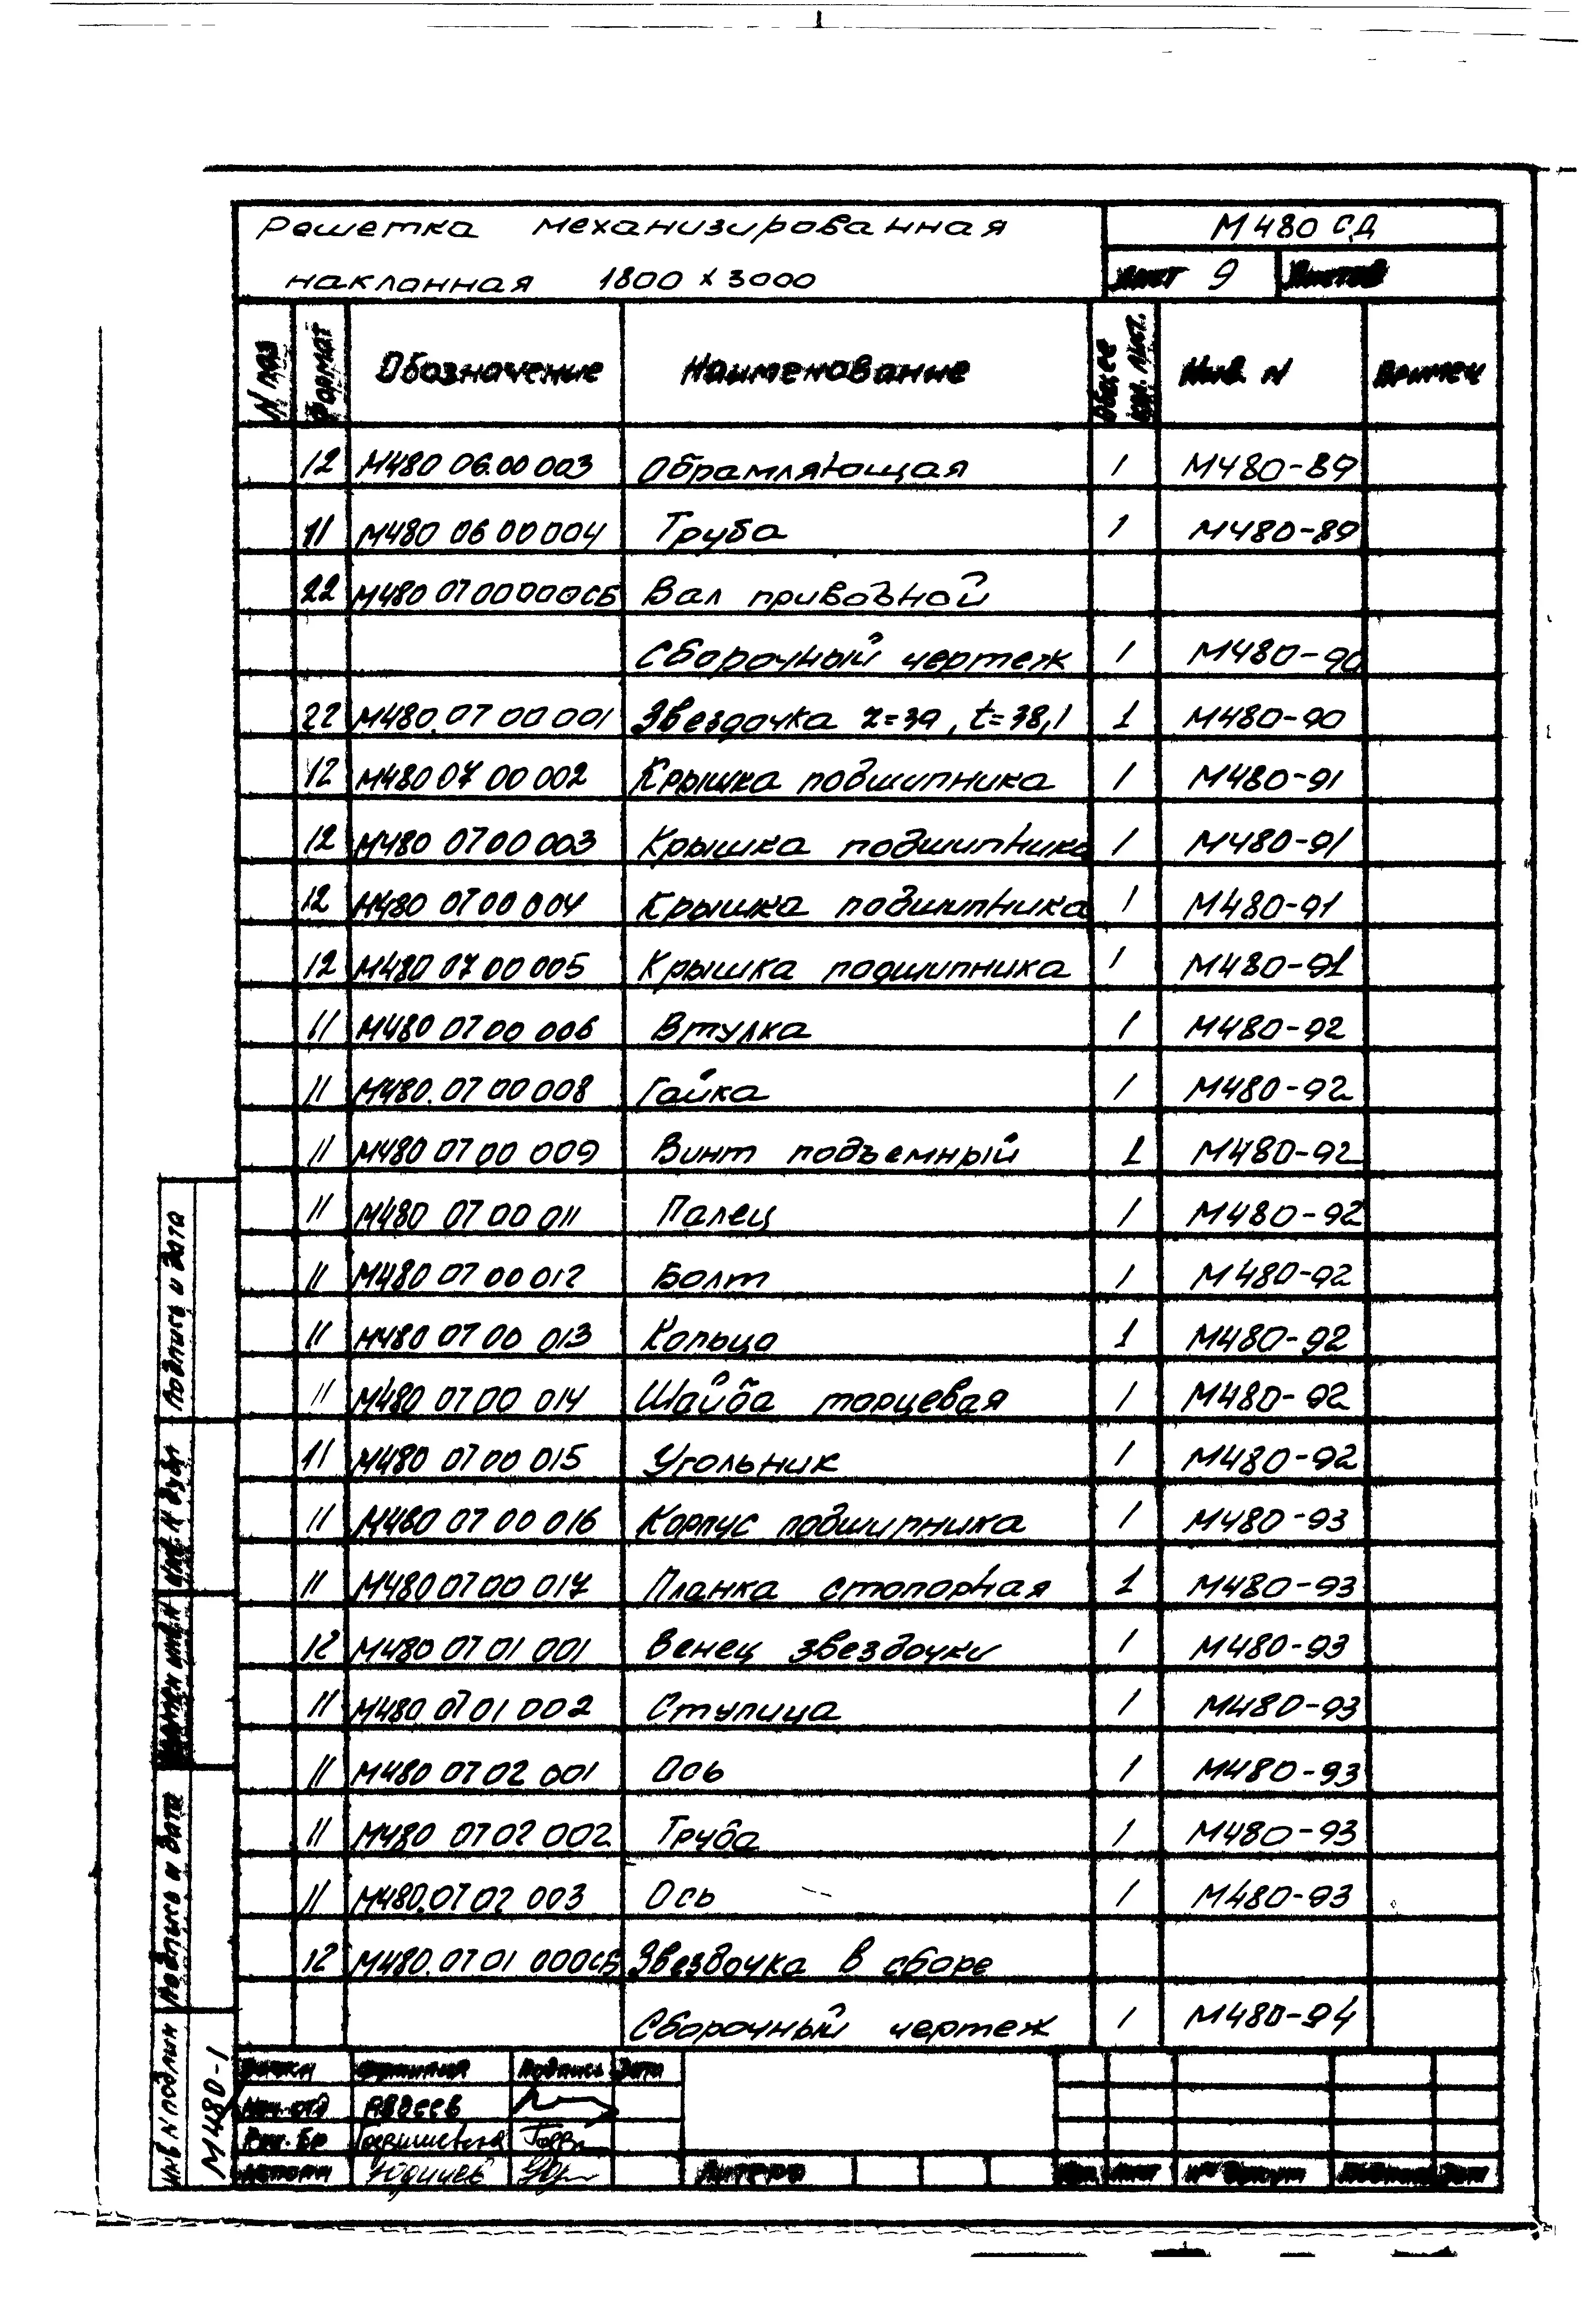 Решетка механизированная М480 СД
наклонная 1800 х 3000 лист 9 Листов
N паз Формат Обозначение Наименование Общее кол. лист. Инв. N Примеч
12 М480 06.00 003 Обрамляющая 1 М480-89
11 М480 06 00 004 Труба 1 М480-89
22 М480 07 00 000 СБ Вал приводной
Сборочный чертеж 1 М480-90
22 М480.07 00 001 Звездочка z=39, t=38,1 1 М480-90
12 М480 07 00 002 Крышка подшипника 1 М480-91
12 М480 07 00 003 Крышка подшипника 1 М480-91
12 М480 07 00 004 Крышка подшипника 1 М480-91
12 М480 07 00 005 Крышка подшипника 1 М480-91
11 М480 07 00 006 Втулка 1 М480-92
11 М480.07 00 008 Гайка 1 М480-92
11 М480 07 00 009 Винт подъемный 1 М480-92
11 М480 07 00 011 Палец 1 М480-92
11 М480 07 00 012 Болт 1 М480-92
11 М480 07 00 013 Кольцо 1 М480-92
11 М480 07 00 014 Шайба торцевая 1 М480-92
11 М480 07 00 015 Угольник 1 М480-92
11 М480 07 00 016 Корпус подшипника 1 М480-93
11 М480 07 00 017 Планка стопорная 1 М480-93
12 М480 07 01 001 Венец звездочки 1 М480-93
11 М480 07 01 002 Ступица 1 М480-93
11 М480 07 02 001 Ось 1 М480-93
11 М480 07 02 002 Труба 1 М480-93
11 М480.07 02 003 Ось 1 М480-93
12 М480.07 01 000 СБ Звездочка в сборе
Сборочный чертеж 1 М480-94
Фамилия Подпись Дата
Нач. отд Авдеев
Рук. бр
Исполн Юдичев Литера Изм. лист N° докум Подпись Дата
Подпись и дата
Инв. N дубл
Взамен инв. N
Подпись и дата
Инв N подлин
М480-1